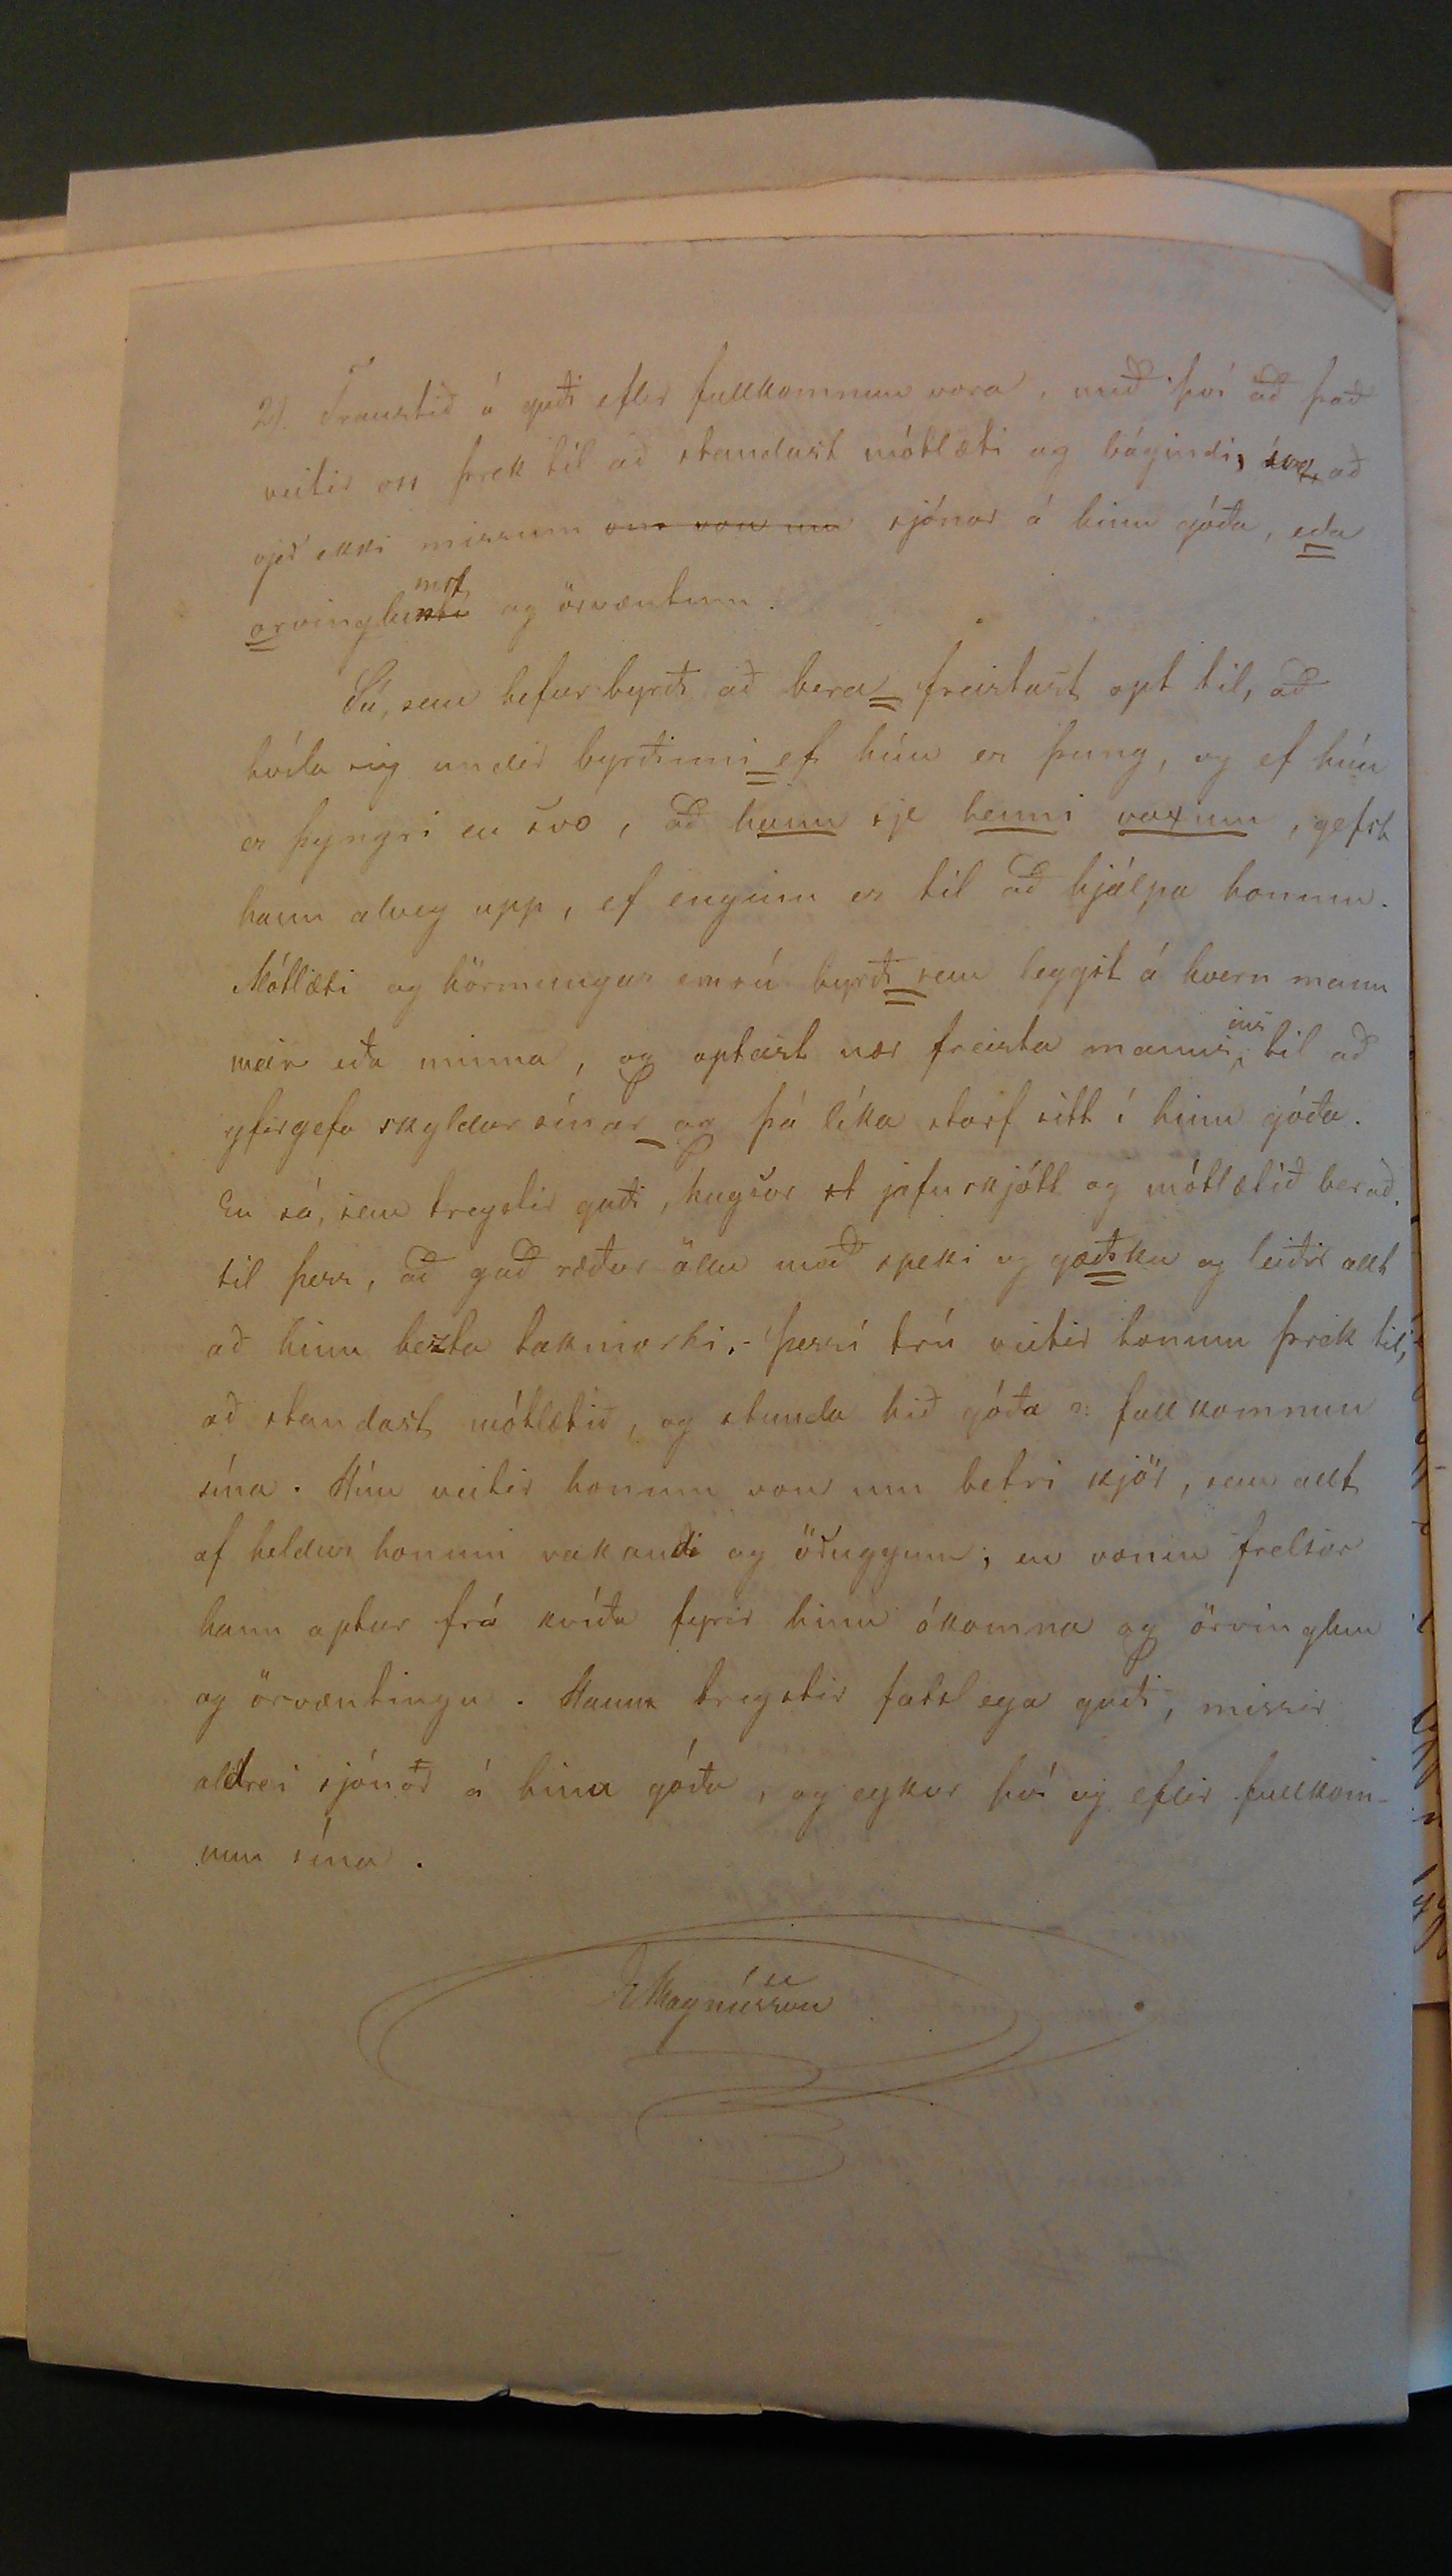 2). Traustið á guði eflir fullkomnun vora, með því að það
veitir oss þrek til að standast mótlæti og bágindi, svo, að
vjer ekki missum sjónar á hinu góða, eða
örvinglumst og örvæntum.
Sá, sem hefur byrði að bera freistast opt til, að
hvíla sig undir byrðinni ef hún er þung, og ef hún
er þyngri en svo, að hann sje henni vaxinn, gefst
hann alveg upp, ef enginn er til að hjálpa honum.
Mótlæti og hörmungar em sú byrði sem leggst á hvern mann
meir eða minna, og optast nær freista mannsins til að
yfirgefa skyldur sínar og þá líka starf sitt í hinu góða.
En sá, sem treystir guði, hugsar jafnskjótt og mótlætið ber að,
til þess, að guð ræður öllu með speki og gæðsku og leiðir allt
að hinu bezta takmarki. - Þessi trú veitir honum þrek til,
að standast mótlætið, og stunda hið góða ɔ: fullkomnun
sína. Hún veitir honum von um betri kjör, sem allt
af heldur honum vakandi og öruggum; en vonin frelsar
hann aptur frá kvíða fyrir hinu ókomna og örvinglun
og örvæntingu. Hann treystir fatslega guði, missir
aldrei sjónar á hinu góða, og eykur því og eflir fullkom-
nun sína.
E Magnússon